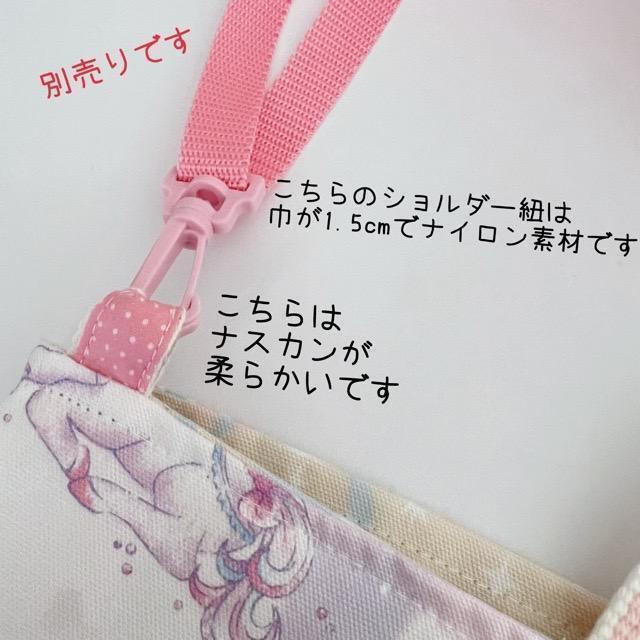 別売りです
こちらのショルダー紐は
巾が1.5cmでナイロン素材です
こちらは
ナスカンが
柔らかいです